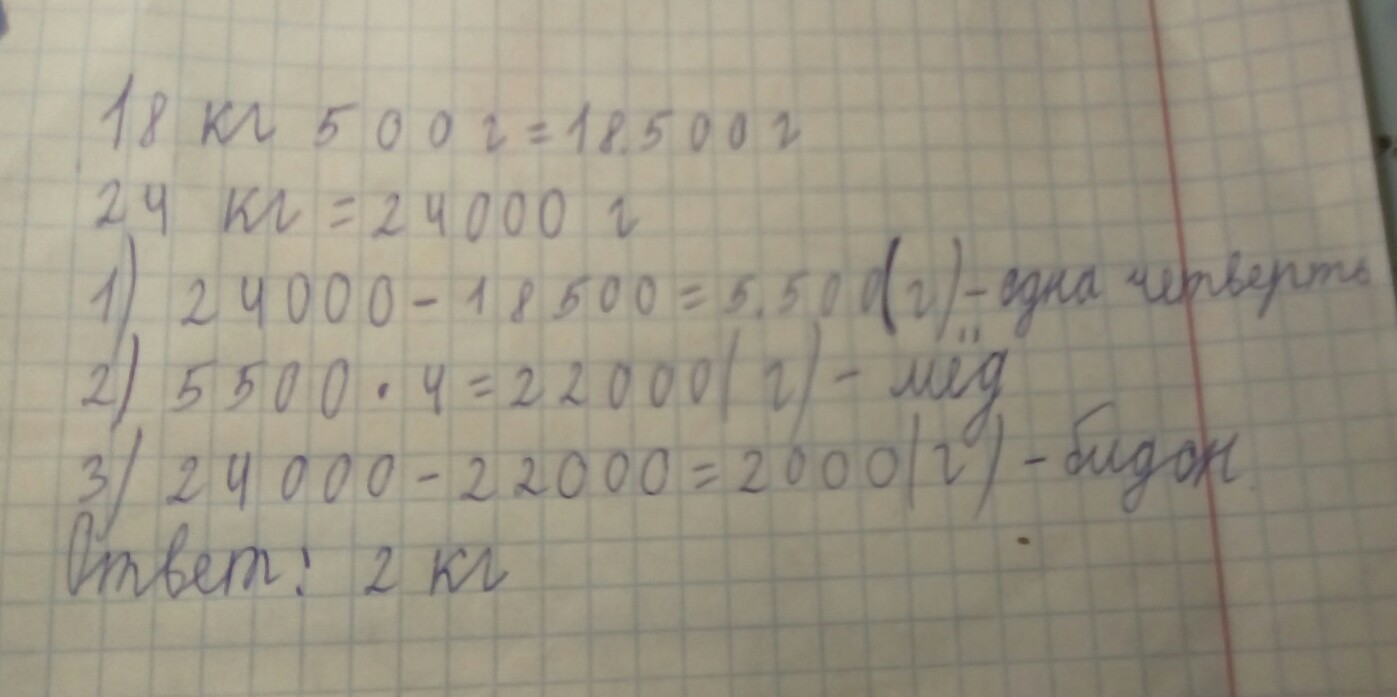 18 кг 500 г = 18.500 г
24 кг = 24000 г
1) 24000 - 18500 = 5.500(г) - одна четверть
2) 5500 · 4 = 22000(г) - мёд
3) 24000 - 22000 = 2000(г) - бидон
Ответ: 2 кг